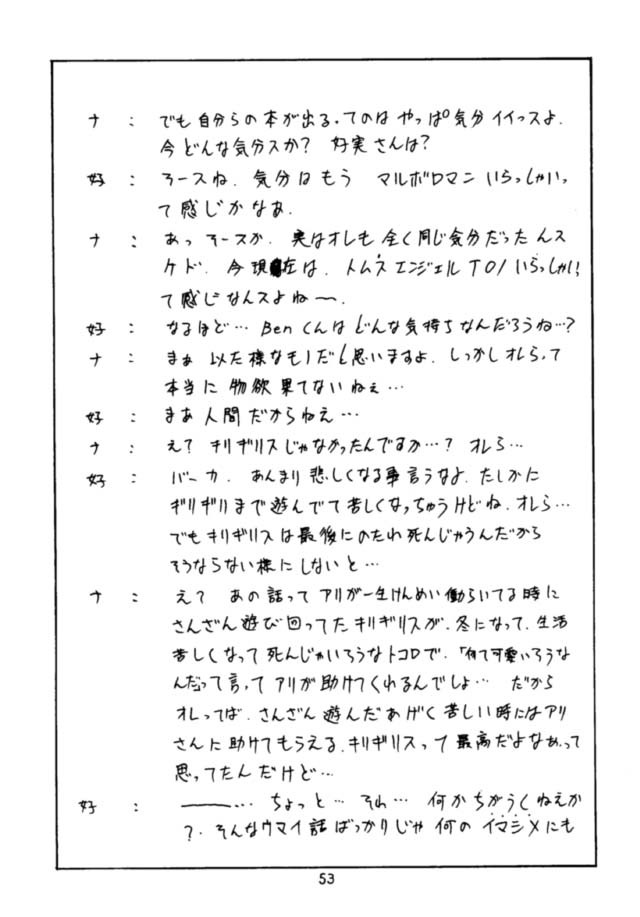 ナ : でも自分らの本が出る、てのは やっぱ気分イイっスよ.
今どんな気分スか? 好実さんは?
好 : そースね. 気分はもう マルボロマン いらっしゃいっ
て感じかなあ.
ナ : あっ そースか. 実はオレも全く同じ気分だったんス
ケド. 今現在は、トムスエンジェル T01 いらっしゃいっ
て感じなんスよねー.
好 : なるほど… Benくんはどんな気持ちなんだろうね…?
ナ : まぁ 似た様なモノだと思いますよ. しっかしオレらって
本当に物欲果てないねぇ…
好 : まあ人間だからねえ…
ナ : え? キリギリスじゃなかったんですか…? オレら…
好 : バーカ. あんまり悲しくなる事言うなよ. たしかに
ギリギリまで遊んでて苦しくなっちゃうけどね. オレら…
でもキリギリスは最後にのたれ死んじゃうんだから
そうならない様にしないと…
ナ : え? あの話って アリが一生けんめい働らいてる時に
さんざん遊び回ってたキリギリスが、冬になって、生活
苦しくなって死んじゃいそうなトコロで、「何て可愛いそうな
んだ」って言って アリが助けてくれるんでしょ… だから
オレってば、さんざん遊んだあげく苦しい時にはアリ
さんに助けてもらえる、キリギリスって最高だよなぁって
思ってたんだけど…
好 : ――… ちょっと… それ… 何かちがうくねえか
?. そんなウマイ話ばっかりじゃ 何のイマシメにも
53